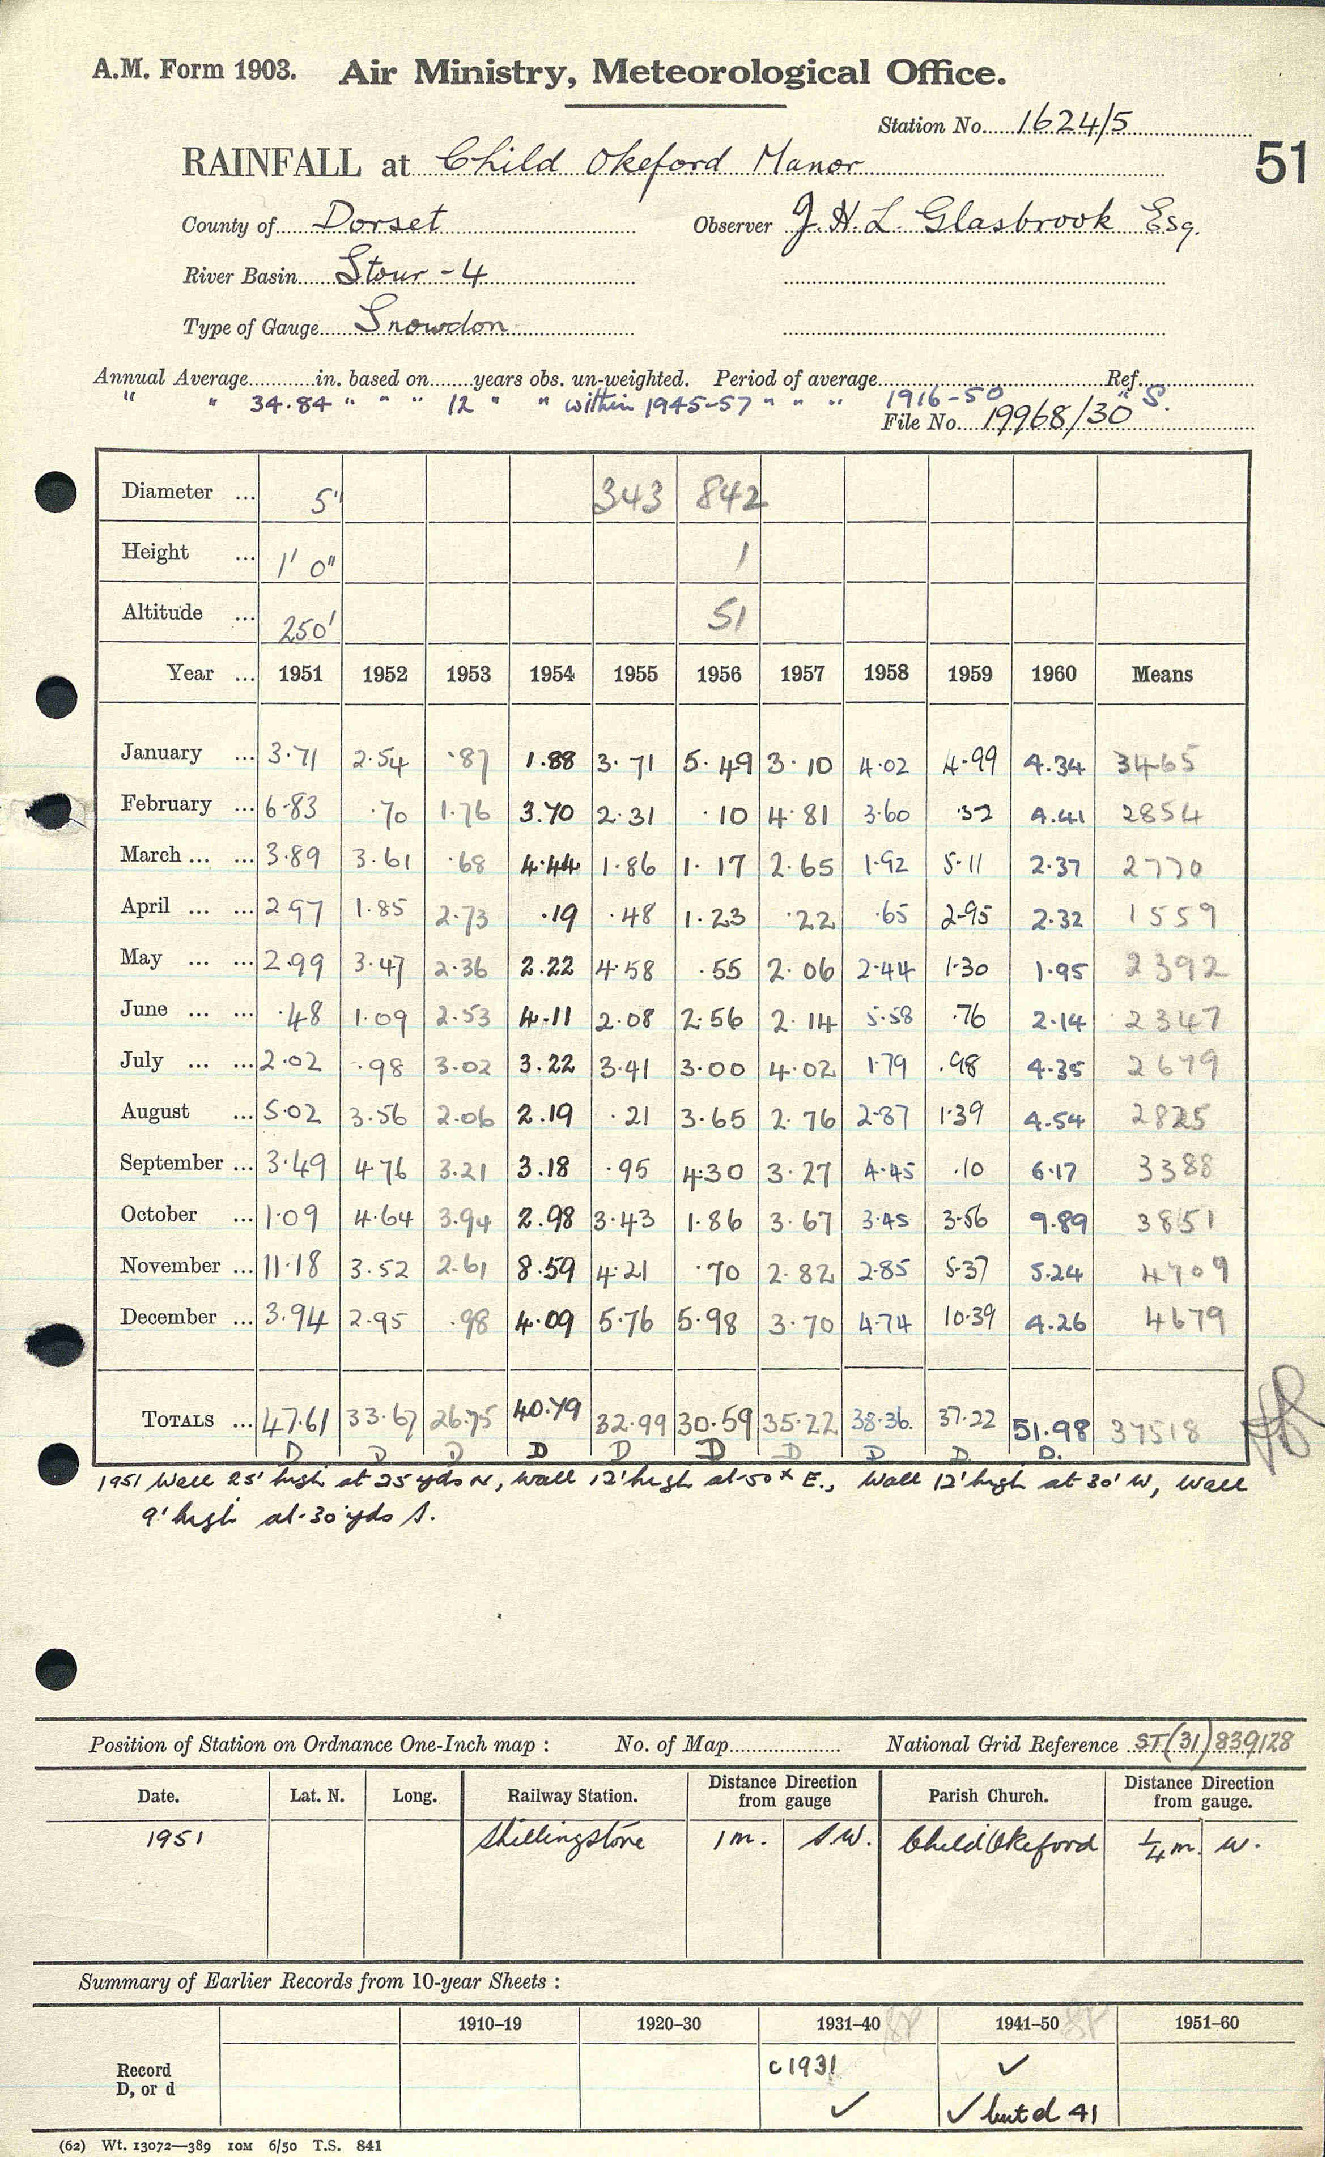 A.M. Form 1903. Air Ministry, Meteorological Office.
Station No. 1624/5
RAINFALL at Child Okeford Manor
51
County of Dorset Observer J. H. L. Glasbrook Esq.
River Basin Stour - 4
Type of Gauge Snowdon
Annual Average in. based on years obs. un-weighted. Period of average Ref.
" " 34.84 " " " 12 " " within 1945-57 " " " 1916-50 " S.
File No. 19968/30
Diameter ... 5" 343 842
Height ... 1' 0" 1
Altitude ... 250' 51
Year ... 1951 1952 1953 1954 1955 1956 1957 1958 1959 1960 Means
January ... 3.71 2.54 .87 1.88 3.71 5.49 3.10 4.02 4.99 4.34 3465
February ... 6.83 .70 1.76 3.70 2.31 .10 4.81 3.60 .32 4.41 2854
March ... ... 3.89 3.61 .68 4.44 1.86 1.17 2.65 1.92 5.11 2.37 2770
April ... ... 2.97 1.85 2.73 .19 .48 1.23 .22 .65 2.95 2.32 1559
May ... ... 2.99 3.47 2.36 2.22 4.58 .55 2.06 2.44 1.30 1.95 2392
June ... ... .48 1.09 2.53 4.11 2.08 2.56 2.14 5.58 .76 2.14 2347
July ... ... 2.02 .98 3.02 3.22 3.41 3.00 4.02 1.79 .98 4.35 2679
August ... 5.02 3.56 2.06 2.19 .21 3.65 2.76 2.87 1.39 4.54 2825
September ... 3.49 4.76 3.21 3.18 .95 4.30 3.27 4.45 .10 6.17 3388
October ... 1.09 4.64 3.94 2.98 3.43 1.86 3.67 3.45 3.56 9.89 3851
November ... 11.18 3.52 2.61 8.59 4.21 .70 2.82 2.85 5.37 5.24 4709
December ... 3.94 2.95 .98 4.09 5.76 5.98 3.70 4.74 10.39 4.26 4679
TOTALS ... 47.61 33.67 26.75 40.79 32.99 30.59 35.22 38.36 37.22 51.98 37518
D D D D D D D D D D.
1951 Wall 25' high at 25 yds N, wall 12' high at 50 x E., Wall 12' high at 30' W, wall
9' high at 30 yds S.
Position of Station on Ordnance One-Inch map : No. of Map National Grid Reference ST(31)839128
Date. Lat. N. Long. Railway Station. Distance Direction from gauge Parish Church. Distance Direction from gauge.
1951 Shillingstone 1 m. S W. Child Okeford 1/4 m. W.
Summary of Earlier Records from 10-year Sheets :
1910-19 1920-30 1931-40 1941-50 1951-60
Record c1931 ✓
D, or d ✓ ✓ but d 41
(62) Wt. 13072—389 10M 6/50 T.S. 841